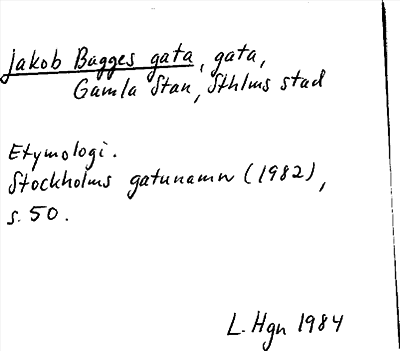 Jakob Bagges gata, gata,
Gamla Stan, Sthlms stad
Etymologi.
Stockholms gatunamn (1982),
s. 50.
L. Hgn 1984